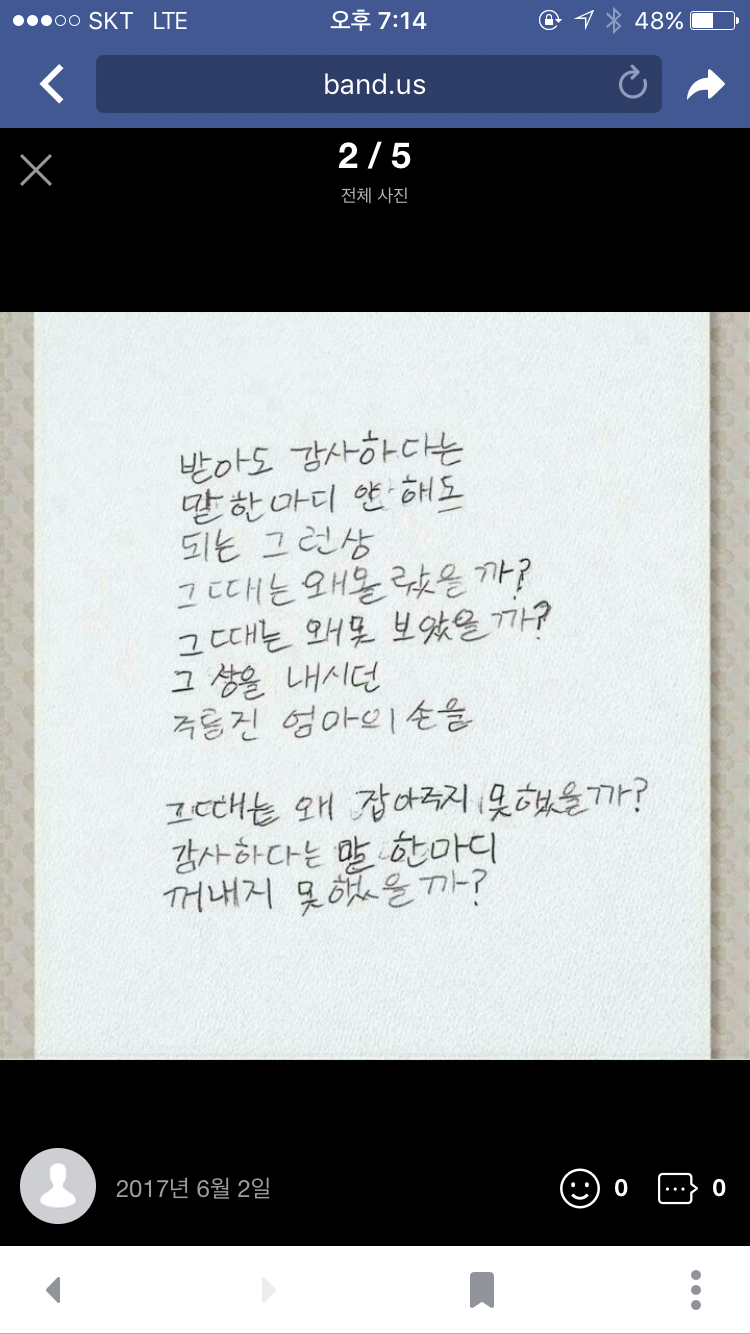 SKT LTE 오후 7:14 48%
band.us
2 / 5
전체 사진
받아도 감사하다는
말 한마디 안 해도
되는 그런상
그때는 왜몰랐을까?
그때는 왜못 보았을까?
그 상을 내시던
주름진 엄마의 손을
그때는 왜 잡아주지 못했을까?
감사하다는 말 한마디
꺼내지 못했을까?
2017년 6월 2일 0 0